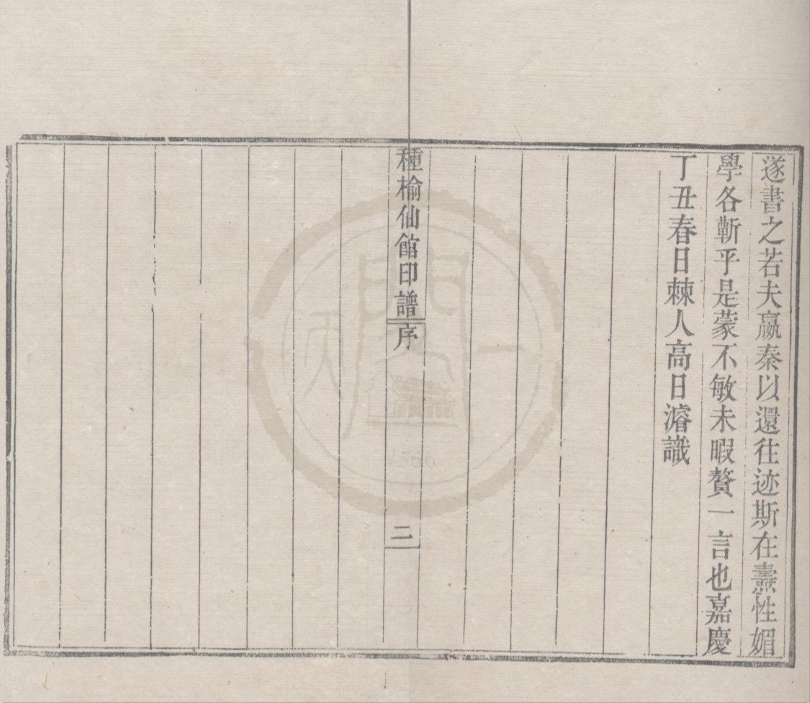 遂書之若夫嬴秦以還往迹斯在燾性媚
學各蘄乎是蒙不敏未暇贅一言也嘉慶
丁丑春日棘人高日濬識
種榆仙館印譜序
二